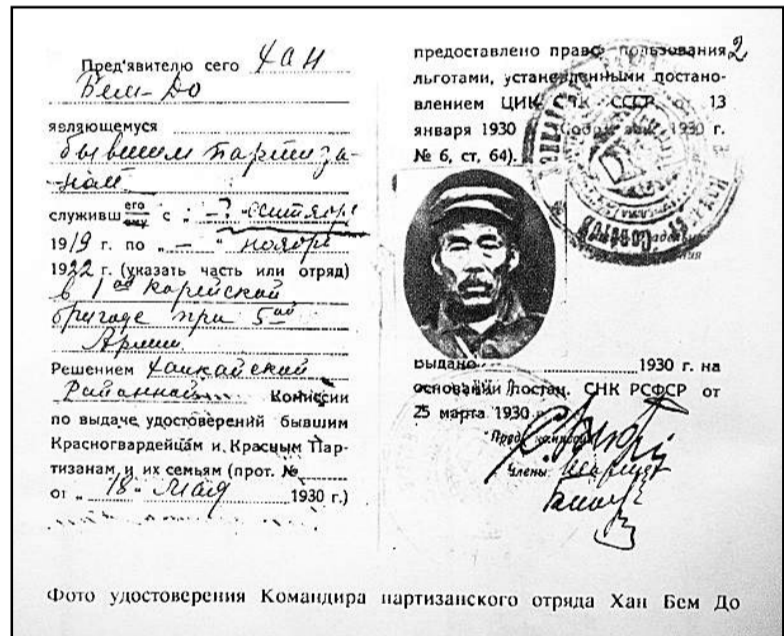 Пред'явителю сего Хан
Бем-До
являющемуся
бывшим партиза-
ном
служивш его ему с „ –? " сентября
1919 г. по „ – " ноябрь
1922 г. (указать часть или отряд)
в 1ой Корейской
бригаде при 5ой
Армии.
Решением Ханкайской
Районной Комиссии
по выдаче удостоверений бывшим
Красногвардейцам и Красным Пар-
тизанам и их семьям (прот. №
от „ 18 " Мая 1930 г.)
2
предоставлено право пользования
льготами, установленными постано-
влением ЦИК СНК СССР от 13
января 1930 1930 г.
№ 6, ст, 64).
Выдано 1930 г. на
основании постан. СНК РСФСР от
25 марта 1930
Члены:
Фото удостоверения Командира партизанского отряда Хан Бем До